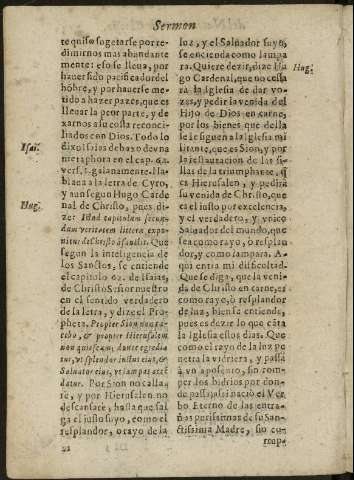 Sermon
te quiso sogetarse por re-
dimirnos mas abundante
mente: eso se lleua, por
hauer sido pacificador del
hõbre, y por hauerse me-
tido a hazer pazes, que es
lleuar la peor parte, y de
xarnos a su costa reconci-
liados con Dios. Todo lo
dixo Isaias debaxo de vna
metaphora en el cap. 62.
vers. 1. galanamente. Ha-
blaua a la letra de Cyro,
y aun segun Hugo Carde
nal de Christo, pues di-
ze: Istud capitulum secun-
dum veritatem litteræ expo-
nitur de Christo à sanctis. Que
segun la inteligencia de
los Sanctos, se entiende
el capitulo 62. de Isaias,
de Christo Señor nuestro
en el sentido verdadero
de la letra, y dize el Pro-
pheta. Propter Sion non ta-
cebo, & propter Hierusalem
non quiescam, donec egredia
tur, vt splendor iustus eius, &
Saluator eius, vt lampas accē
datur. Por Sion no calla-
rè, y por Hierusalen no
descansarè, hasta que sal-
ga el iusto suyo, como el
resplandor, o rayo de la
Isai.
Hug.
luz, y el Saluador suyo,
se encienda como lampa
ra. Quiere dezir, dize Hu
go Cardenal, que no cessa
rà la Iglesia de dar vo-
zes, y pedir la venida del
Hijo de Dios en carne,
por los bienes que della
se le siguen a la Iglesia mi
litante, que es Sion, y por
la restauracion de las si-
llas de la triumphante, q̃
es Hierusalen, y pedira
su venida de Christo, que
es el iusto por excelencia,
y el verdadero, y vnico
Saluador del mundo, que
sea como rayo, ò resplan
dor, y como lampara. A-
qui entra mi difficultad.
Que se diga, que la veni-
da de Christo en carne, es
como rayo, ò resplandor
de luz, bien se entiende,
pues es dezir lo que cãta
la Iglesia estos dias. Que
como el rayo de la luz pe
netra la vidriera, y passa
à vn aposento, sin rom-
per los bidrios por don-
de passa; assi naciò el Ver
bo Eterno de las entra-
ñas purissimas de su San-
ctissima Madre, sin cu
romp-
Hug.